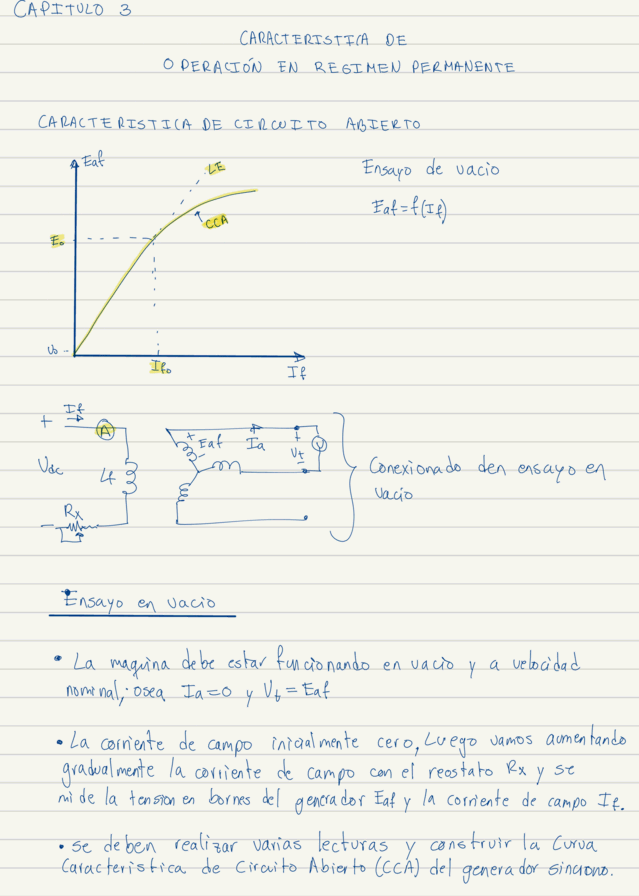 CAPITULO 3
CARACTERISTICA DE
OPERACIÓN EN REGIMEN PERMANENTE
CARACTERISTICA DE CIRCUITO ABIERTO
Eaf
LE
Ensayo de vacio
Eaf=f(If)
CCA
E₀
V₀
If₀
If
If
+
A
Vdc
Lf
Rx
-
+
Eaf
-
Ia
+
Vt
-
V
Conexionado den ensayo en
vacio
Ensayo en vacio
• La maquina debe estar funcionando en vacio y a velocidad
nominal, osea Ia=0 y Vt=Eaf
• La corriente de campo inicialmente cero, Luego vamos aumentando
gradualmente la corriente de campo con el reostato Rx y se
mide la tension en bornes del generador Eaf y la corriente de campo If.
• se deben realizar varias lecturas y construir la Curva
Caracteristica de Circuito Abierto (CCA) del generador sincrono.